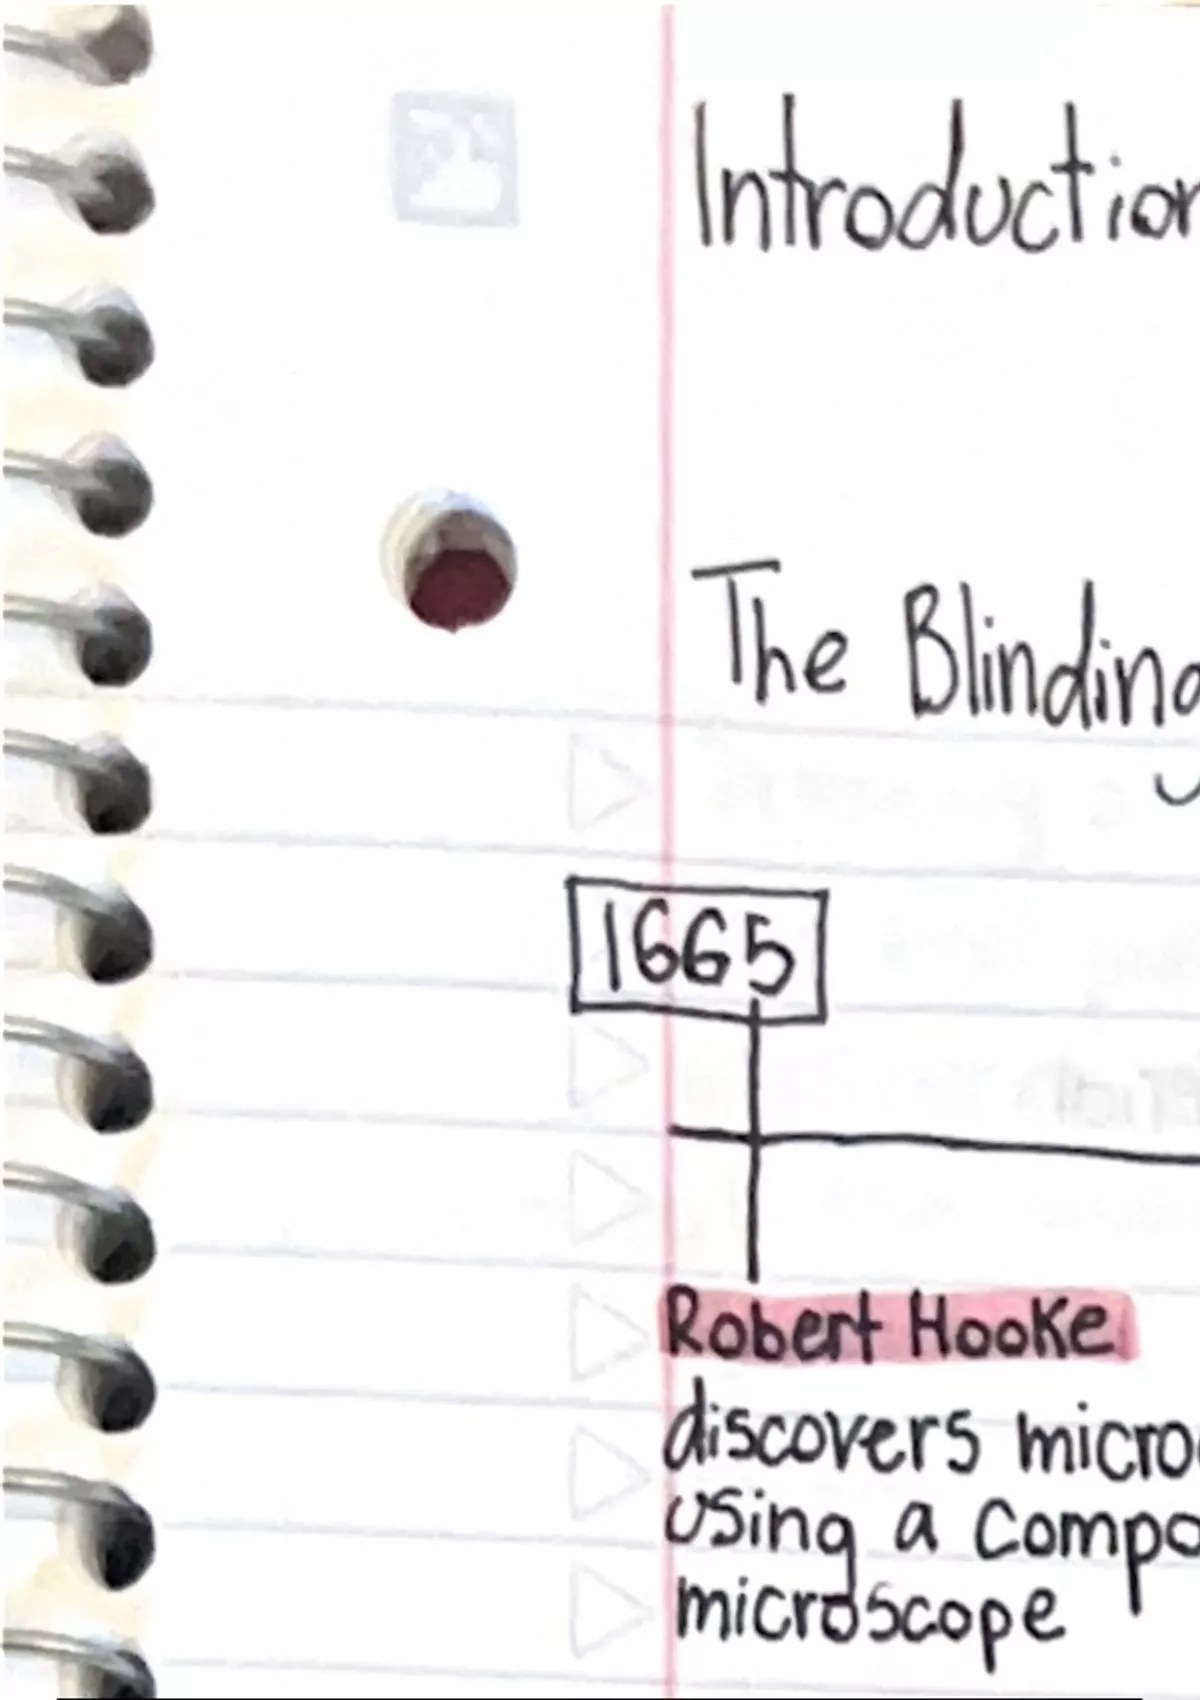 Introduction
The Blinding
1665
Robert Hooke
discovers micro
using a compo
microscope